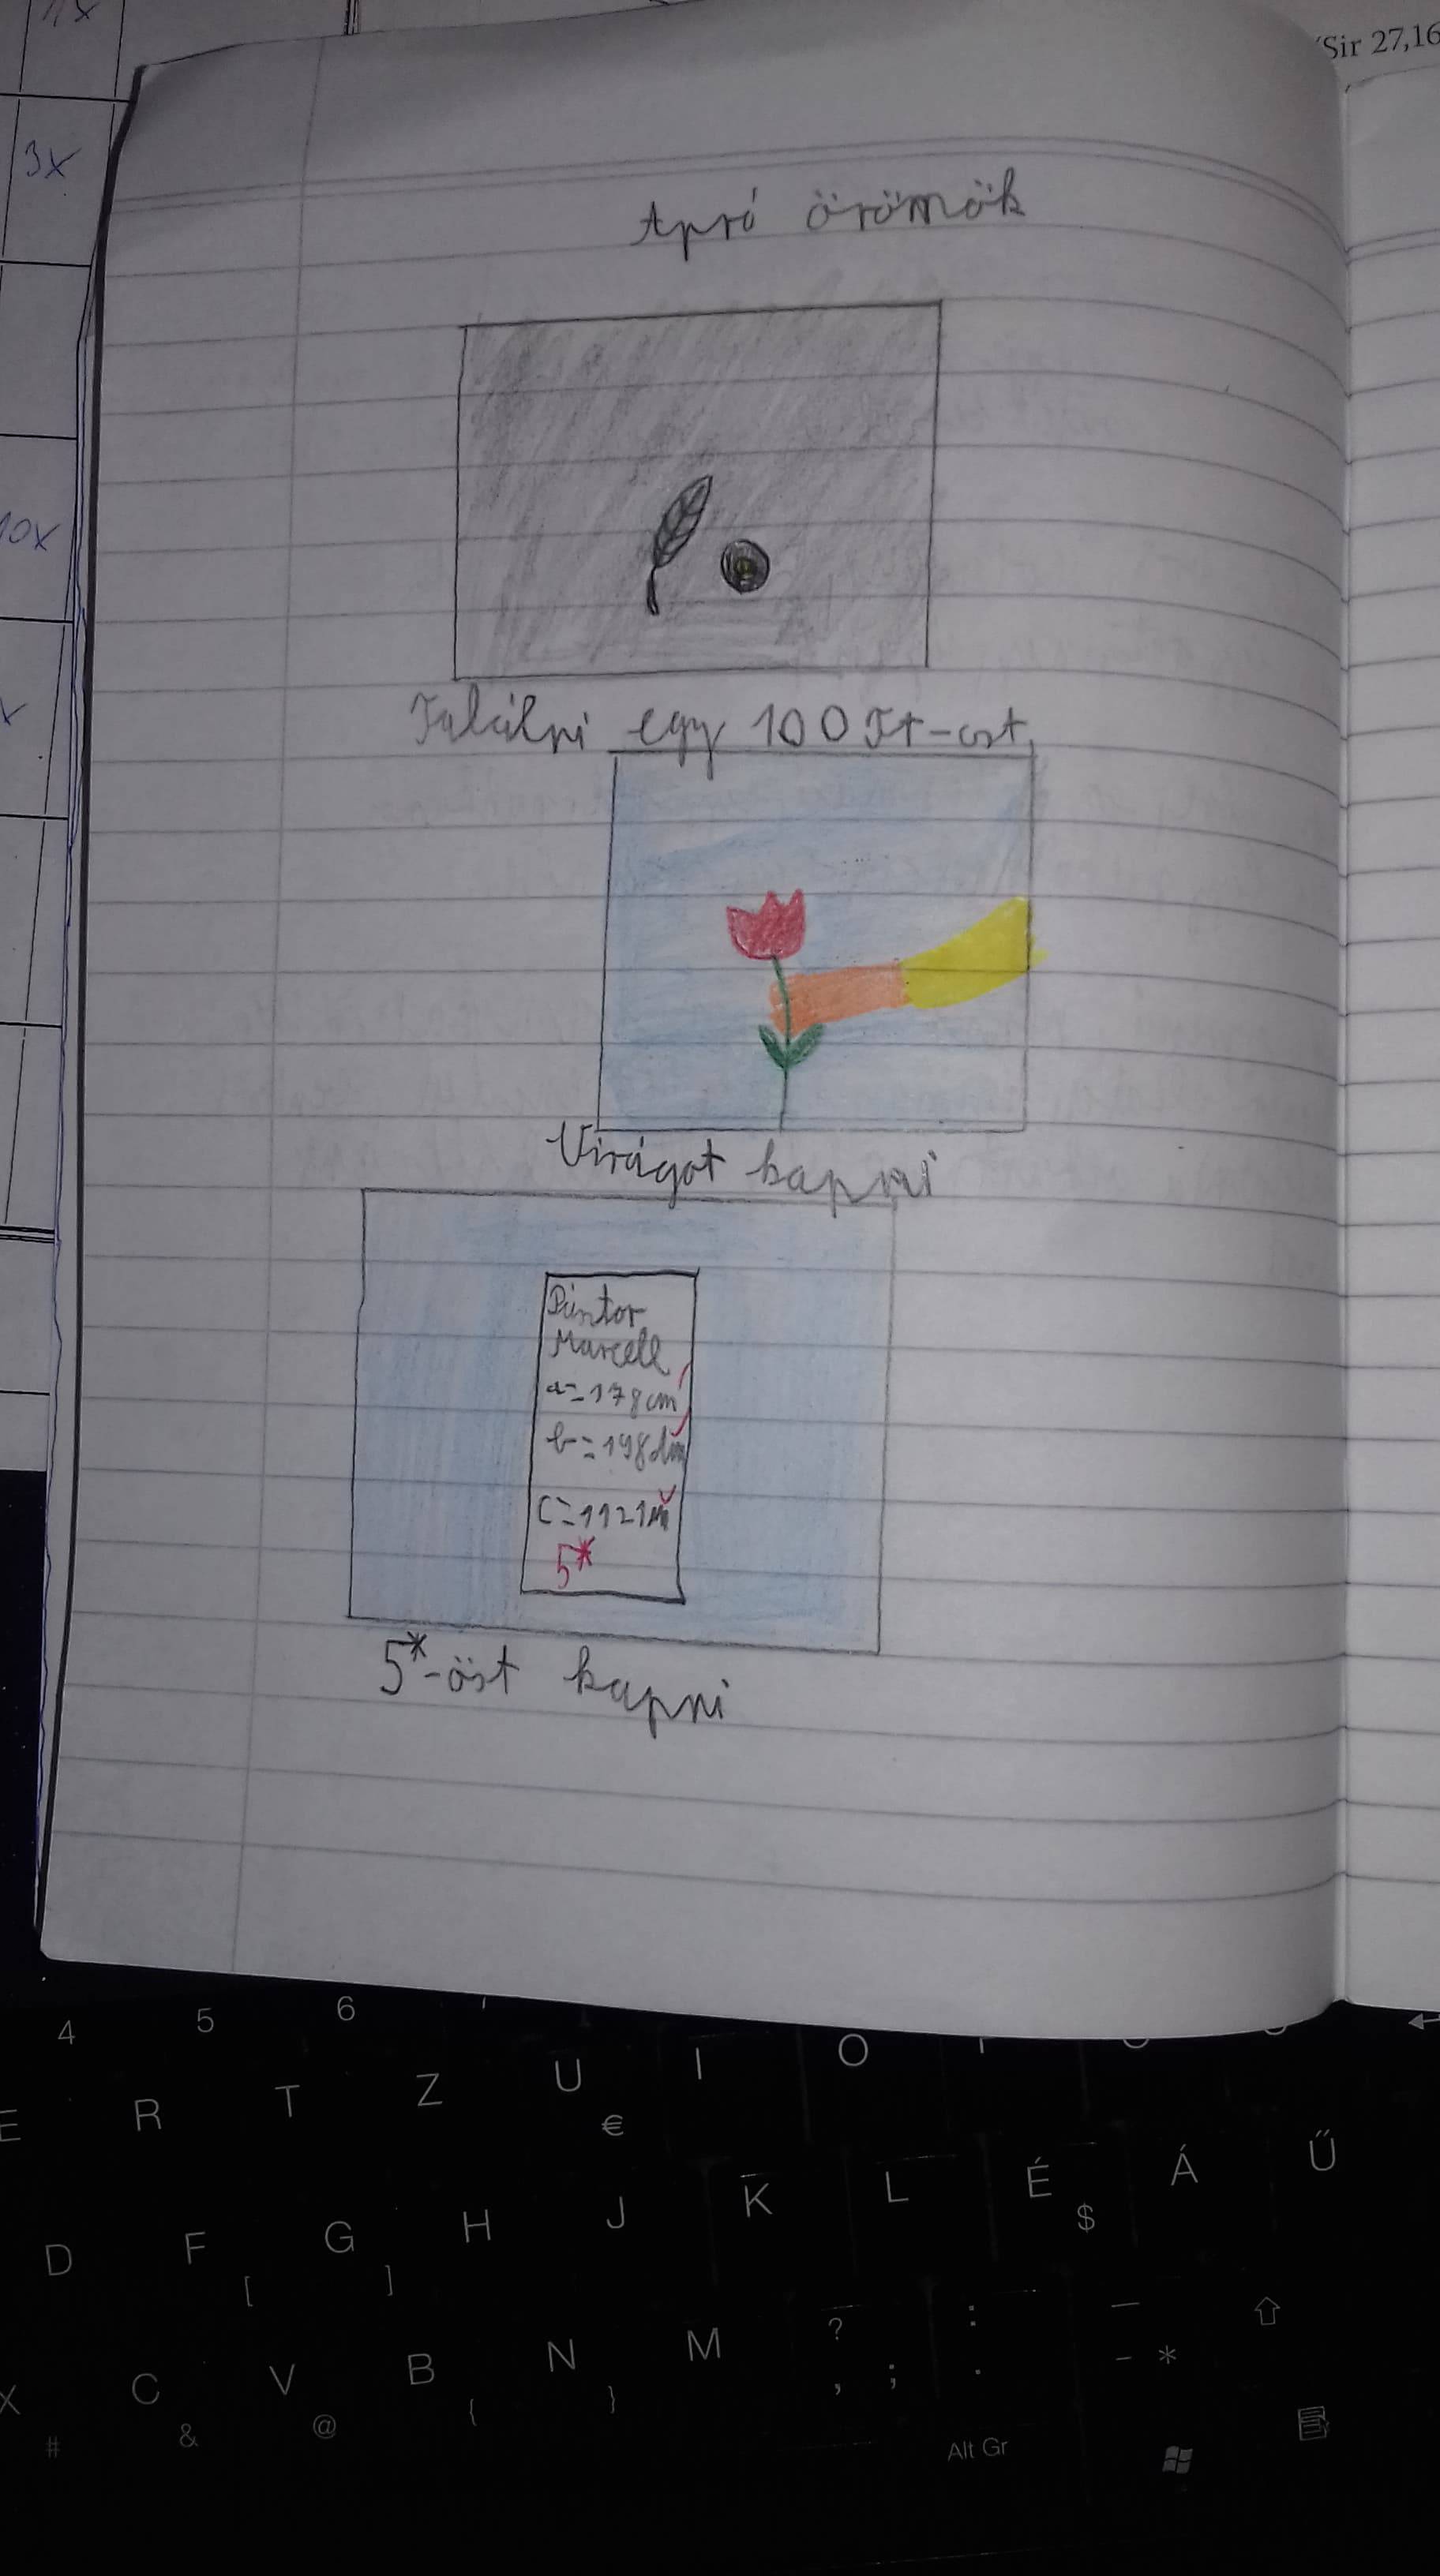 (Sir 27,16
3x
10x
Apró örömök
Találni egy 100 Ft-ost
Virágot kapni
Pintor
Marcell
a=178cm
b=198dm
c=1121m
5*
5*-öst kapni
4 5 6
E R T Z U I O
€
D F G H J K L É Á Ű
[ ] $
X C V B N M ? : _
# & @ { } , ; . - *
Alt Gr